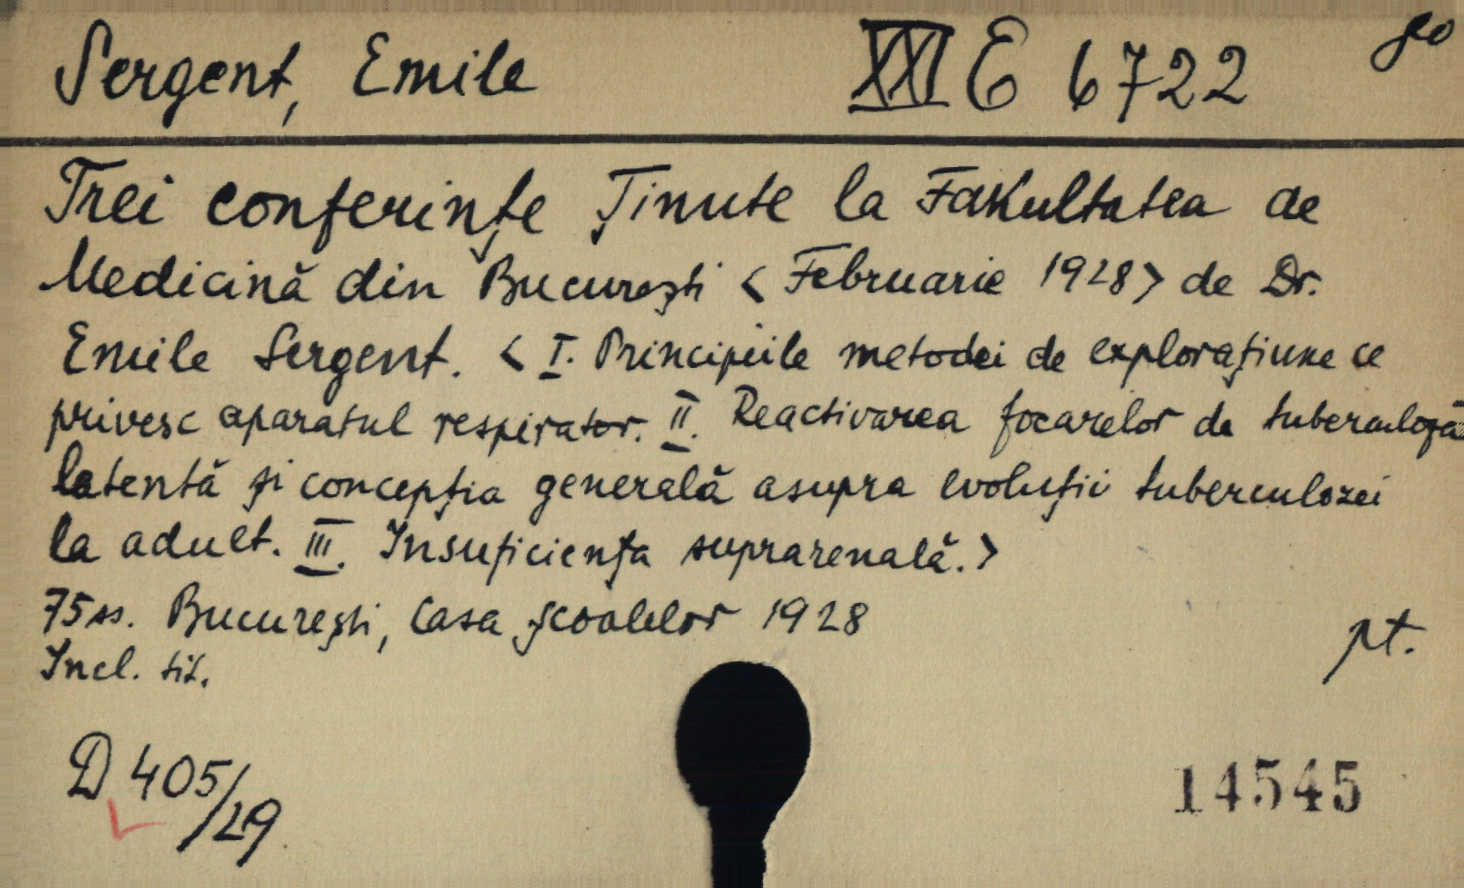 Sergent, Emile XXI E 6722 go
Trei conferințe Ținute la Fakultatea de
Medicină din București < Februarie 1928> de Dr.
Emile Sergent. < I. Principiile metodei de explorațiune ce
privesc aparatul respirator. II. Reactivarea focarelor de tuberculoză
latentă și concepția generală asupra evoluții tuberculozei
la adult. III. Insuficiența suprarenală.>
75 ss. București, Casa școalelor 1928
Incl. tit. pt.
D 405/29
14545